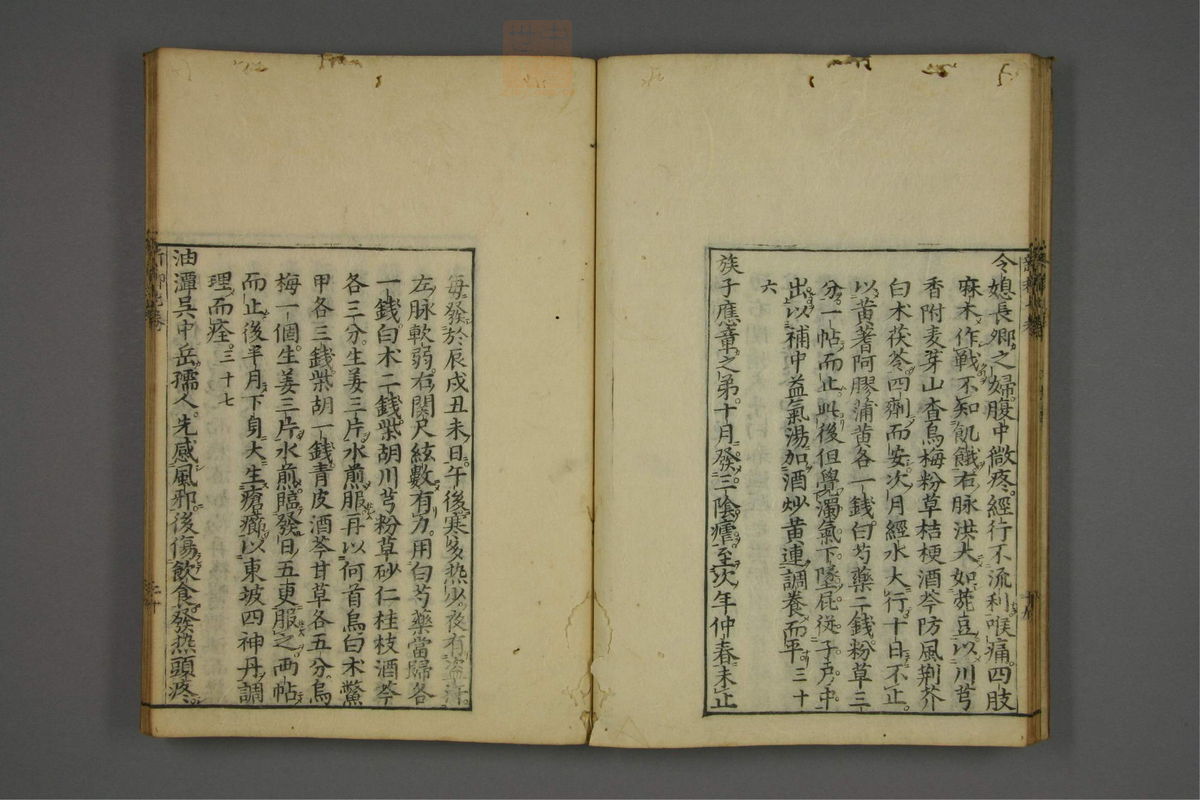 令媳長鄉之婦腹中微疼經行不流利喉痛四肢
麻木作戰不知飢餓右脉洪大如豌豆以川芎
香附麦芽山査烏梅粉草桔梗酒芩防風荆芥
白木茯苓四劑而安次月經水大行十日不止
以黄著阿膠蒲黄各一錢白芍藥二錢粉草三
分一帖而止此後但覺濁氣下墜屁從子戶中
出以補中益氣湯加酒炒黄連調養而平三十
六
族子應章之弟十月發三陰瘧至次年仲春未止
每發於辰戌丑未日午後寒多熱少夜有盗汗
左脉軟弱右関尺絃數有力用白芍藥當歸各
一錢白木二錢柴胡川芎粉草砂仁桂枝酒芩
各三分生姜三片水煎服再以何首烏白木鱉
甲各三錢柴胡一錢青皮酒芩甘草各五分烏
梅一個生姜三片水煎臨發日五更服之两帖
而止後半月下身大生瘡癤以東坡四神丹調
理而痊三十七
油潭吳中岳孺人先感風邪後傷飲食發热頭疼